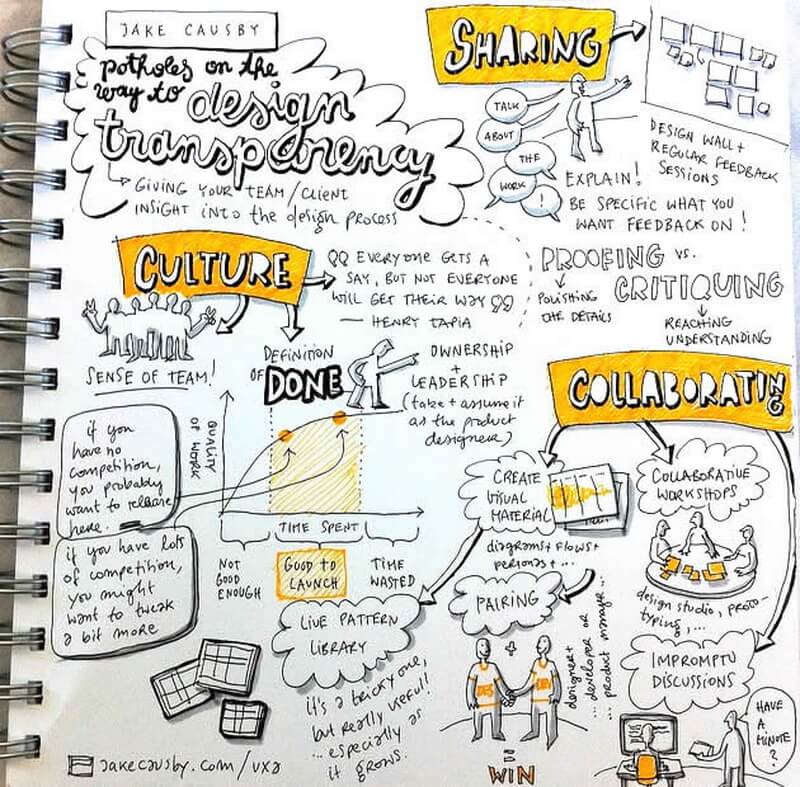 JAKE CAUSBY
potholes on the
way to design
transparency
GIVING YOUR TEAM/CLIENT
INSIGHT INTO the design PROCESS
SHARING
TALK
ABOUT
THE
WORK
!
EXPLAIN!
BE SPECIFIC WHAT YOU
WANT FEEDBACK ON!
DESIGN WALL +
REGULAR FEEDBACK
SESSIONS
PROOFING vs.
CRITIQUING
POLISHING
THE DETAILS
REACHING
UNDERSTANDING
CULTURE
EVERYONE GETS A
SAY, BUT NOT EVERYONE
WILL GET THEIR WAY
— HENRY TAPIA
SENSE OF TEAM!
DEFINITION
OF DONE
OWNERSHIP
+
LEADERSHIP
(take + assume it
as the product
designer)
if you
have no
competition,
you probably
want to release
here.
if you have lots
of competition,
you might
want to tweak
a bit more
QUALITY
OF WORK
TIME SPENT
NOT
GOOD
ENOUGH
GOOD TO
LAUNCH
TIME
WASTED
COLLABORATING
CREATE
VISUAL
MATERIAL
diagrams + flows +
personas + ...
COLLABORATIVE
WORKSHOPS
design studio, proto-
typing, ...
LIVE PATTERN
LIBRARY
it's a tricky one,
but really useful!
... especially as
it grows.
PAIRING
+
DES
DEV
= WIN
designer +
... developer or ...
... product manager ...
IMPROMPTU
DISCUSSIONS
HAVE
A
MINUTE?
jakecausby.com/uxa